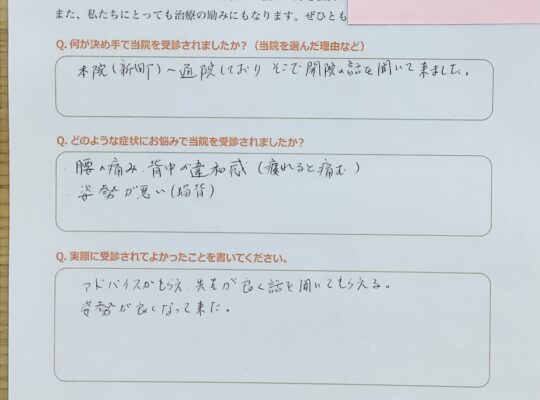 また、私たちにとっても治療の励みにもなります。ぜひとも
Q. 何が決め手で当院を受診されましたか？（当院を選んだ理由など）
本院（新町）へ通院しており、そこで開院の話を聞いて来ました。
Q. どのような症状にお悩みで当院を受診されましたか？
腰の痛み、背中の違和感（疲れると痛む）
姿勢が悪い（猫背）
Q. 実際に受診されてよかったことを書いてください。
アドバイスがもらえ、先生が良く話を聞いてもらえる。
姿勢が良くなって来た。